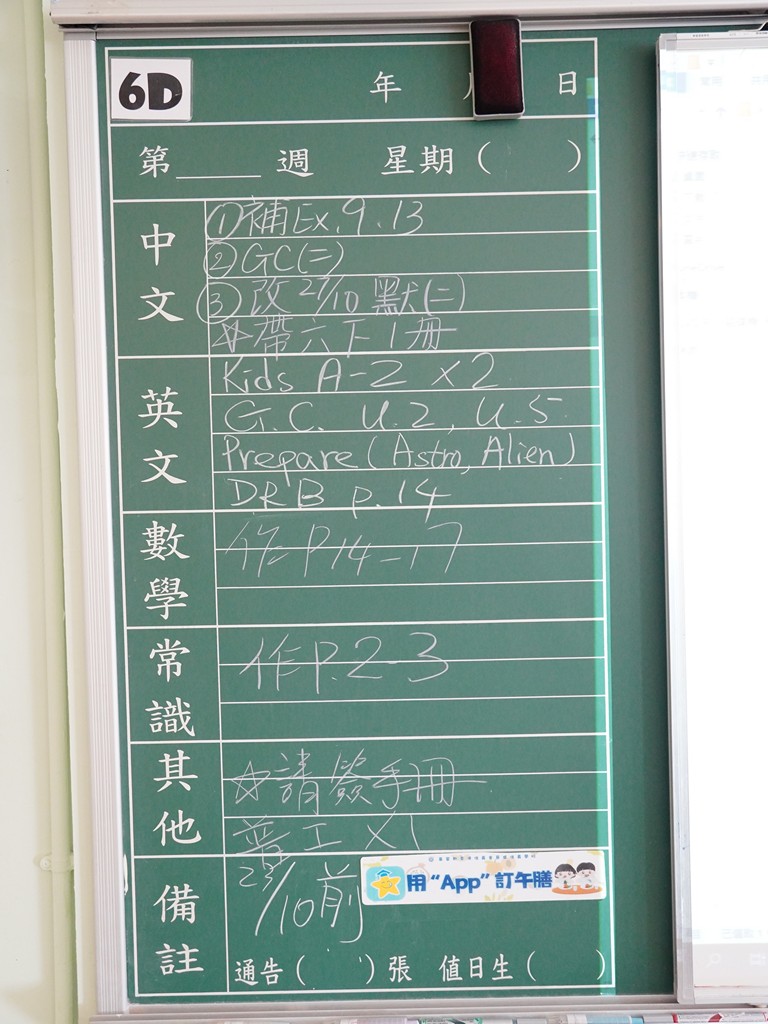 6D
年 日
第____週 星期( )
中文
①補Ex.9.13
②GC(二)
③改27/10默(二)
☆帶六下1冊
英文
Kids A-Z x2
G.C. U.2, U.5
Prepare (Astro, Alien)
DRB p.14
數學
作P.14-17
常識
作P.2-3
其他
☆請簽手冊
普工 X1
備註
23/10前
用“App”訂午膳
通告( )張 值日生( )